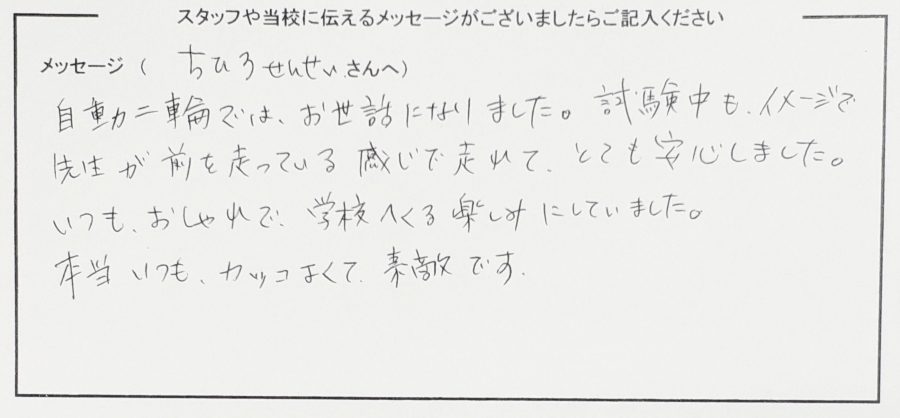 スタッフや当校に伝えるメッセージがございましたらご記入ください
メッセージ ( ちひろせんせい さんへ)
自動二輪では、お世話になりました。試験中も、イメージで
先生が前を走っている感じで走れて、とても安心しました。
いつも、おしゃれで、学校へくる楽しみにしていました。
本当いつも、カッコよくて、素敵です。